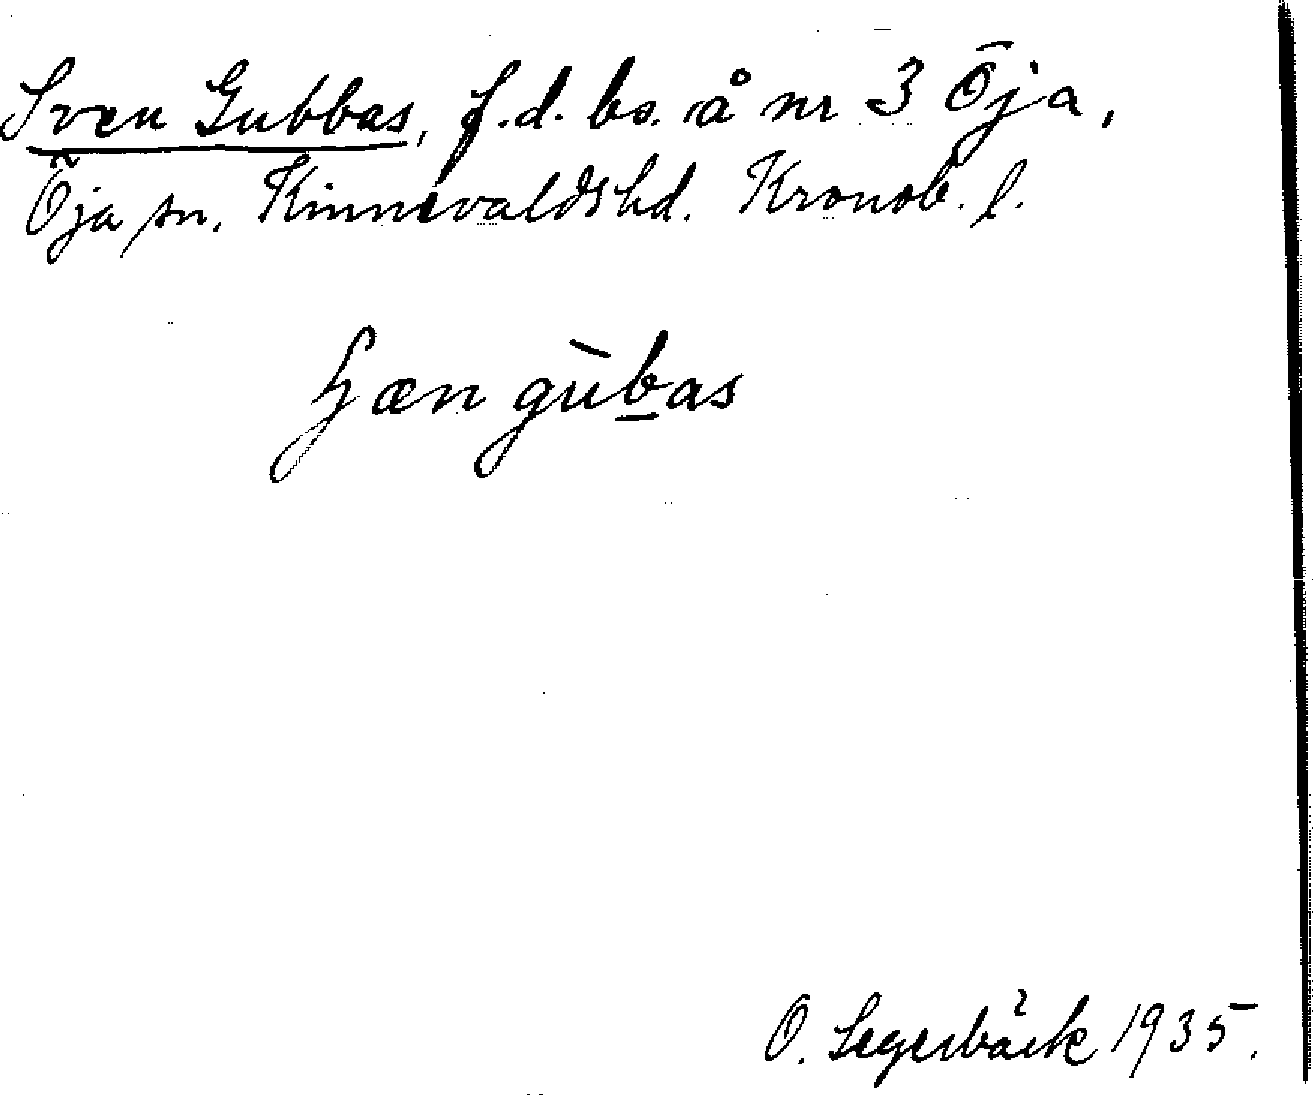 Sven Gubbas, f.d. bs. å nr 3 Öja,
Öja sn. Kinnevalds hd. Kronob. l.
gùbas
O. Segerbäck 1935.